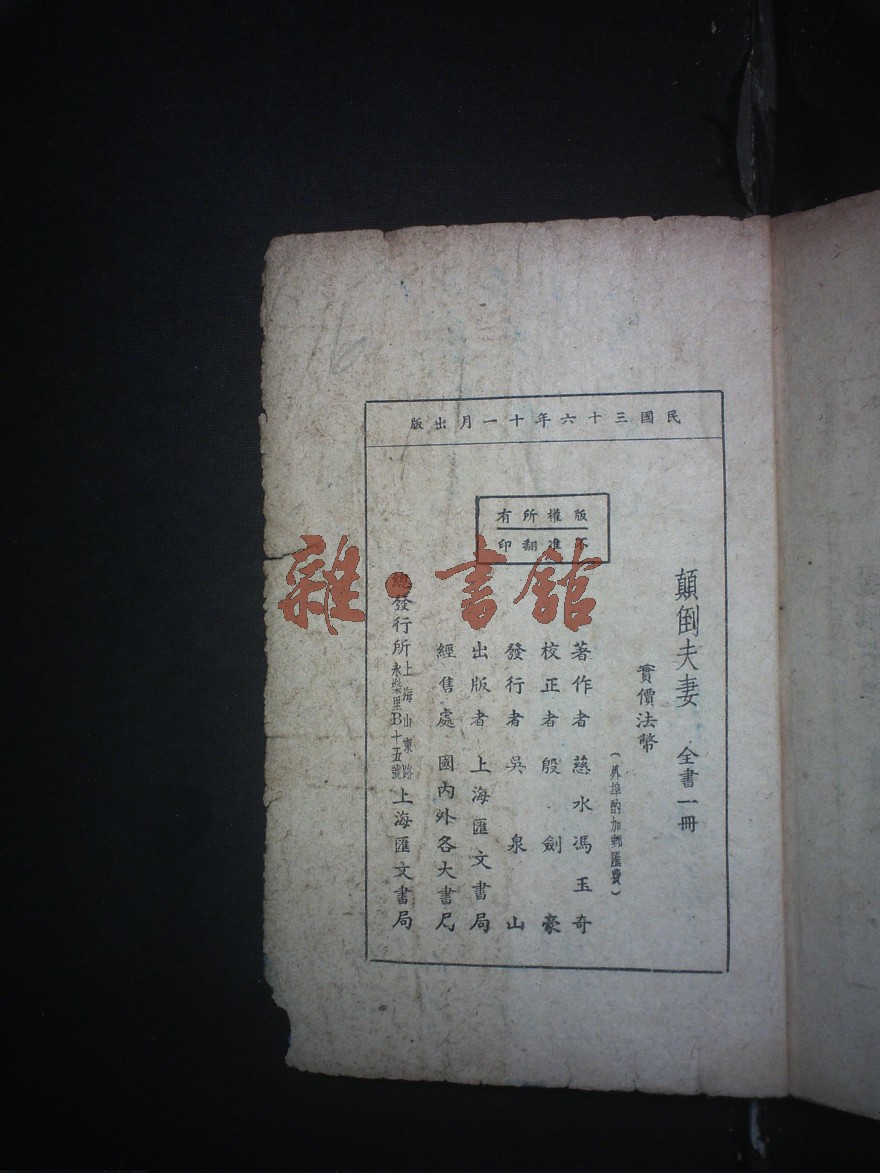 民國三十六年十一月出版
版權所有
不准翻印
顛倒夫妻 全書一冊
實價法幣
（外埠酌加郵匯費）
著作者 慈水馮玉奇
校正者 殷劍豪
發行者 吳泉山
出版者 上海匯文書局
經售處 國內外各大書局
總發行所 上海山東路永樂里B十五號 上海匯文書局
雜·書館
16